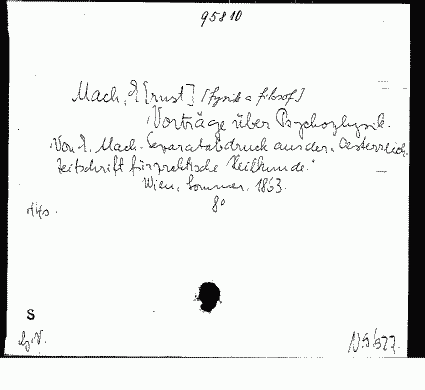 95810
Mach, E[rnst] [fysik a filosof]
Vorträge über Psychophysik.
Von E. Mach. Separatabdruck aus der „Oesterreich.
Zeitschrift für praktische Heilkunde.“
Wien, Sommer, 1863.
8°
S